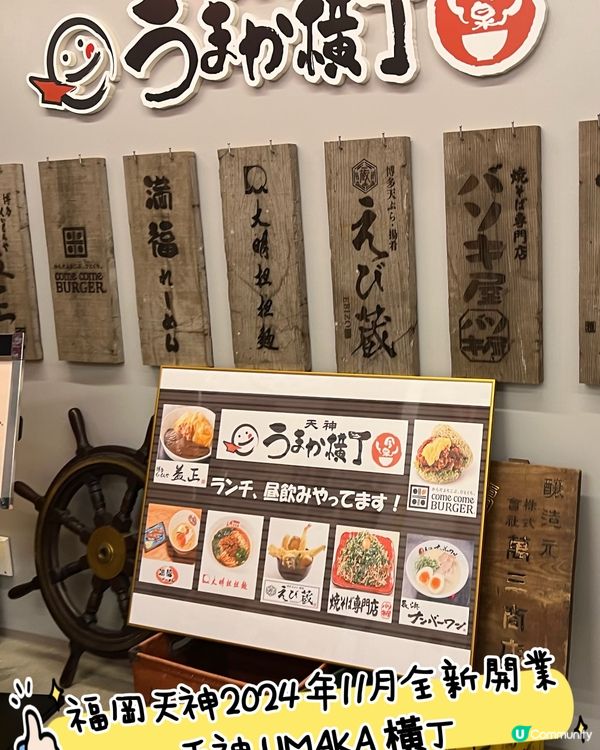 うまか横丁
come come
BURGER
満福らーめん
大明担担麺
博多天ぷら・揚肴
えび蔵
EBIZO
焼そば専門店
バソキ屋
天神
うまか横丁
益正
ランチ、昼飲みやってます！
come come
BURGER
満福
大明担担麺
えび蔵
焼そば専門店
長浜
ナンバーワン
醸造元
株式
會社
福岡天神2024年11月全新開業
天神UMAKA横丁
U Community